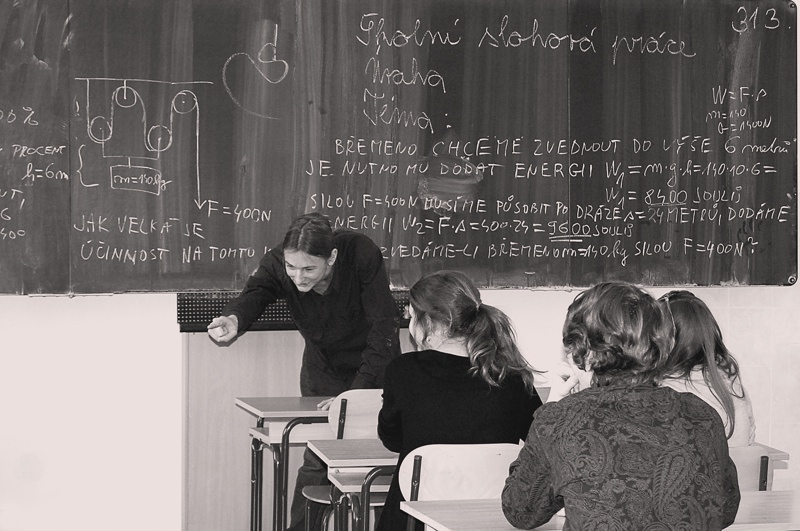 313.
Školní slohová práce
Úvaha
Téma:
W=F.s
m=140
G=1400N
00%
PROCENT
h=6m
m=140kg
F=400N
BŘEMENO CHCEME ZVEDNOUT DO VÝŠE 6 metrů
JE NUTNO MU DODAT ENERGII W₁=m.g.h=140.10.6=
W₁=8400 JOULŮ
SILOU F=400N MUSÍME PŮSOBIT PO DRÁZE s=24 METRŮ, DODÁME
ENERGII W₂=F.s=400.24=9600 JOULŮ
JAK VELKÁ JE
ÚČINNOST NA TOMTO
ZVEDÁME-LI BŘEMENO m=140kg SILOU F=400N?